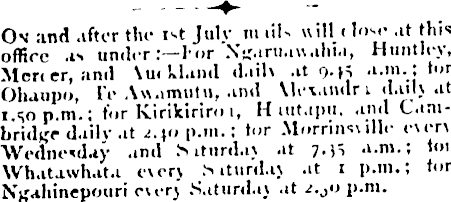 On and after the 1st July mails will close at this
office as under:—For Ngaruawahia, Huntley,
Mercer, and Auckland daily at 9.45 a.m.; for
Ohaupo, Te Awamutu, and Alexandra daily at
1.50 p.m.; for Kirikiriroa, Hautapu, and Cam-
bridge daily at 2.40 p.m.; for Morrinsville every
Wednesday and Saturday at 7.35 a.m.; for
Whatawhata every Saturday at 1 p.m.; for
Ngahinepouri every Saturday at 2.30 p.m.